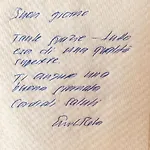 Buon giorno
Tante grazie - tutto
era di una qualità
superiore.
Ti auguro una
buona giornata
Cordiali saluti